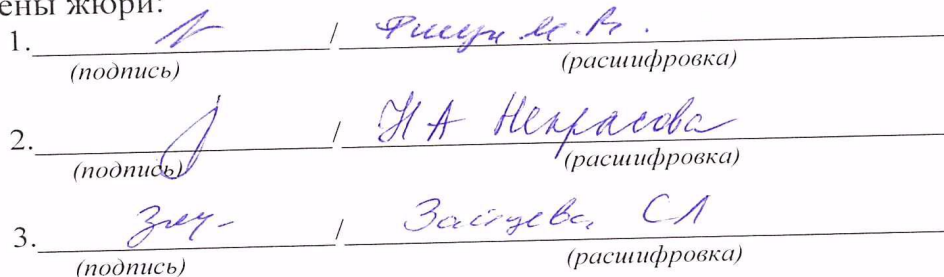 ены жюри:
1. / М. В.
(подпись) (расшифровка)
2. / Н А Некрасова
(подпись) (расшифровка)
3. / Зайцева С Л
(подпись) (расшифровка)